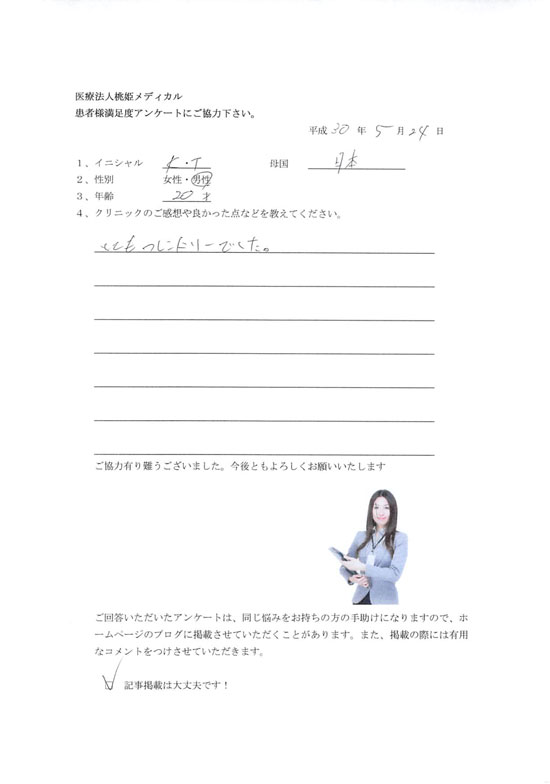 医療法人桃姫メディカル
患者様満足度アンケートにご協力下さい。
平成 30 年 5 月 24 日
1、イニシャル K・T 母国 日本
2、性別 女性・男性
3、年齢 20 才
4、クリニックのご感想や良かった点などを教えてください。
とてもフレンドリーでした。
ご協力有り難うございました。今後ともよろしくお願いいたします
ご回答いただいたアンケートは、同じ悩みをお持ちの方の手助けになりますので、ホ
ームページのブログに掲載させていただくことがあります。また、掲載の際には有用
なコメントをつけさせていただきます。
記事掲載は大丈夫です！